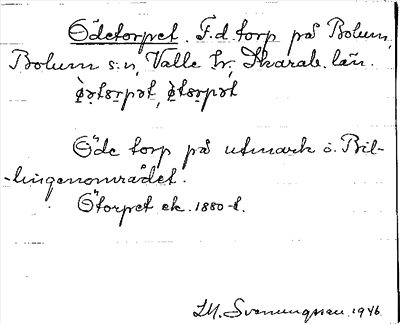 Ödetorpet. F.d. torp på Bolum,
Bolum s:n, Valle hr, Skarab. län.
Öde torp på utmark i Bil-
-lingenområdet.
Ötorpet ek. 1880-t.
Svenungsson 1946